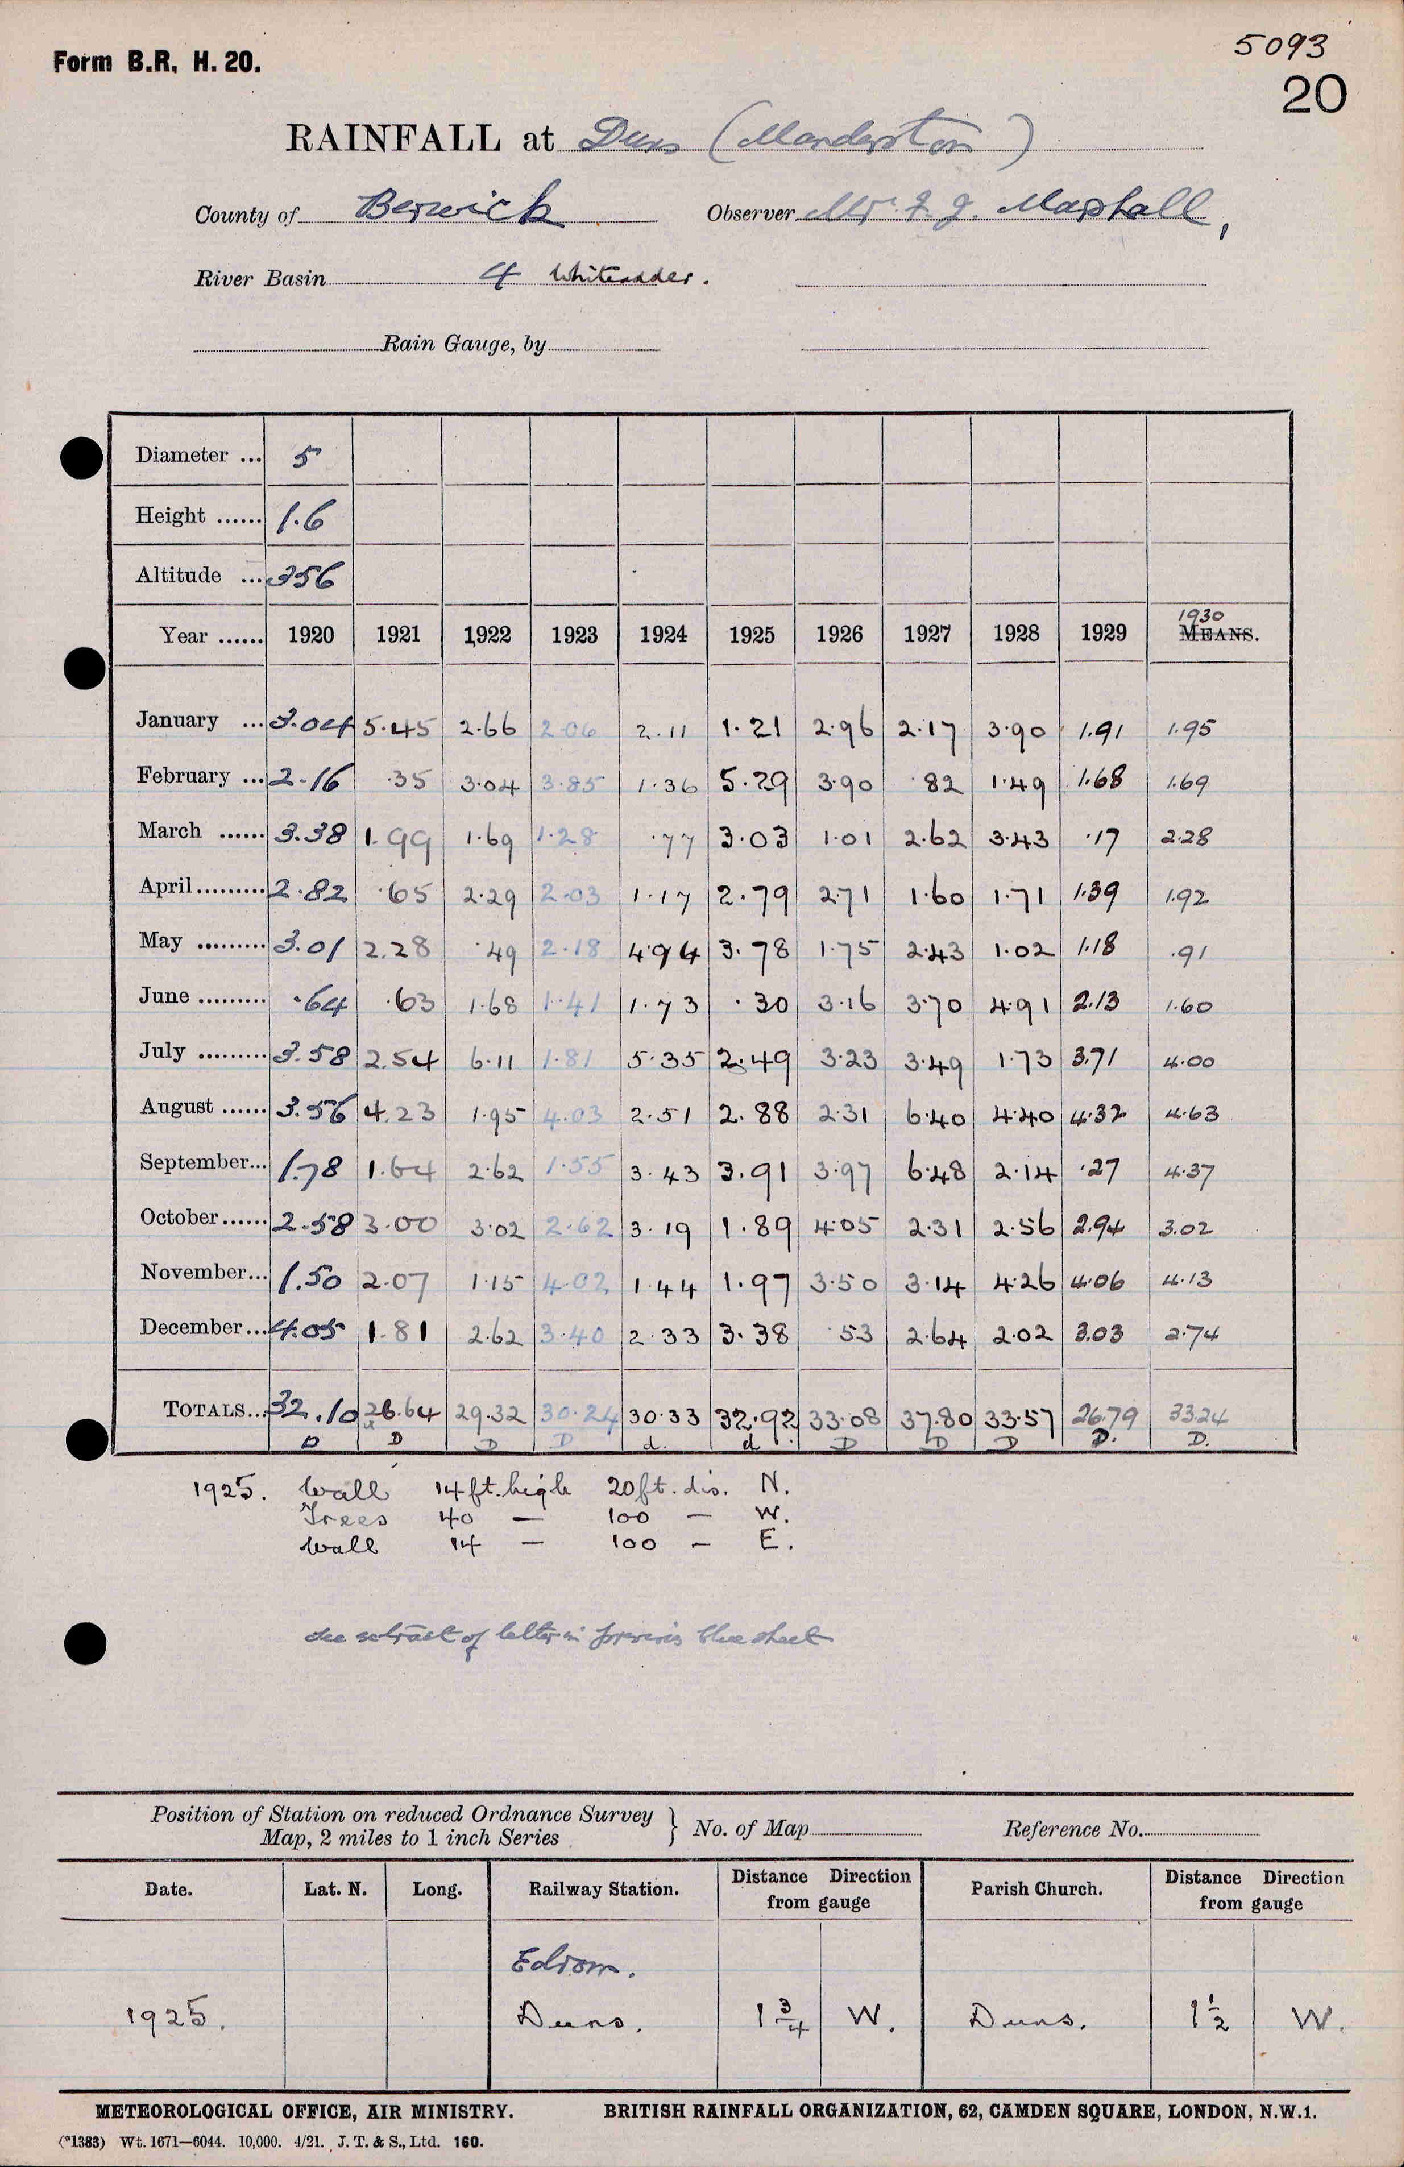 Form B.R. H. 20.
5093
20
RAINFALL at Duns (Manderston)
County of Berwick Observer Mr. Marshall,
River Basin 4 Whiteadder.
Rain Gauge, by
Diameter ... 5
Height ...... 1.6
Altitude ... 356
Year ...... 1920 1921 1922 1923 1924 1925 1926 1927 1928 1929 1930 MEANS.
January ... 3.04 5.45 2.66 2.06 2.11 1.21 2.96 2.17 3.90 1.91 1.95
February ... 2.16 .35 3.04 3.85 1.36 5.29 3.90 .82 1.49 1.68 1.69
March ...... 3.38 1.99 1.69 1.28 .77 3.03 1.01 2.62 3.43 .17 2.28
April ......... 2.82 .65 2.29 2.03 1.17 2.79 2.71 1.60 1.71 1.39 1.92
May ......... 3.01 2.28 .49 2.18 4.94 3.78 1.75 2.43 1.02 1.18 .91
June ......... .64 .63 1.68 1.41 1.73 .30 3.16 3.70 4.91 2.13 1.60
July ......... 3.58 2.54 6.11 1.81 5.35 2.49 3.23 3.49 1.73 3.71 4.00
August ...... 3.56 4.23 1.95 4.03 2.51 2.88 2.31 6.40 4.40 4.32 4.63
September... 1.78 1.64 2.62 1.55 3.43 3.91 3.97 6.48 2.14 .27 4.37
October...... 2.58 3.00 3.02 2.62 3.19 1.89 4.05 2.31 2.56 2.94 3.02
November... 1.50 2.07 1.15 4.02 1.44 1.97 3.50 3.14 4.26 4.06 4.13
December... 4.05 1.81 2.62 3.40 2.33 3.38 .53 2.64 2.02 3.03 2.74
TOTALS... 32.10 26.64 29.32 30.24 30.33 32.92 33.08 37.80 33.57 26.79 33.24
D D D D d. d. D D D D. D.
1925. Wall 14ft. high 20ft. dis. N.
Trees 40 — 100 — W.
Wall 14 — 100 — E.
see extract of letter in previous blue sheet
Position of Station on reduced Ordnance Survey
Map, 2 miles to 1 inch Series } No. of Map Reference No.
Date. Lat. N. Long. Railway Station. Distance Direction from gauge Parish Church. Distance Direction from gauge
Edrom.
1925. Duns. 1 3/4 W. Duns. 1 1/2 W.
METEOROLOGICAL OFFICE, AIR MINISTRY. BRITISH RAINFALL ORGANIZATION, 62, CAMDEN SQUARE, LONDON, N.W.1.
(*1383) Wt. 1671—6044. 10,000. 4/21. J. T. & S., Ltd. 160.